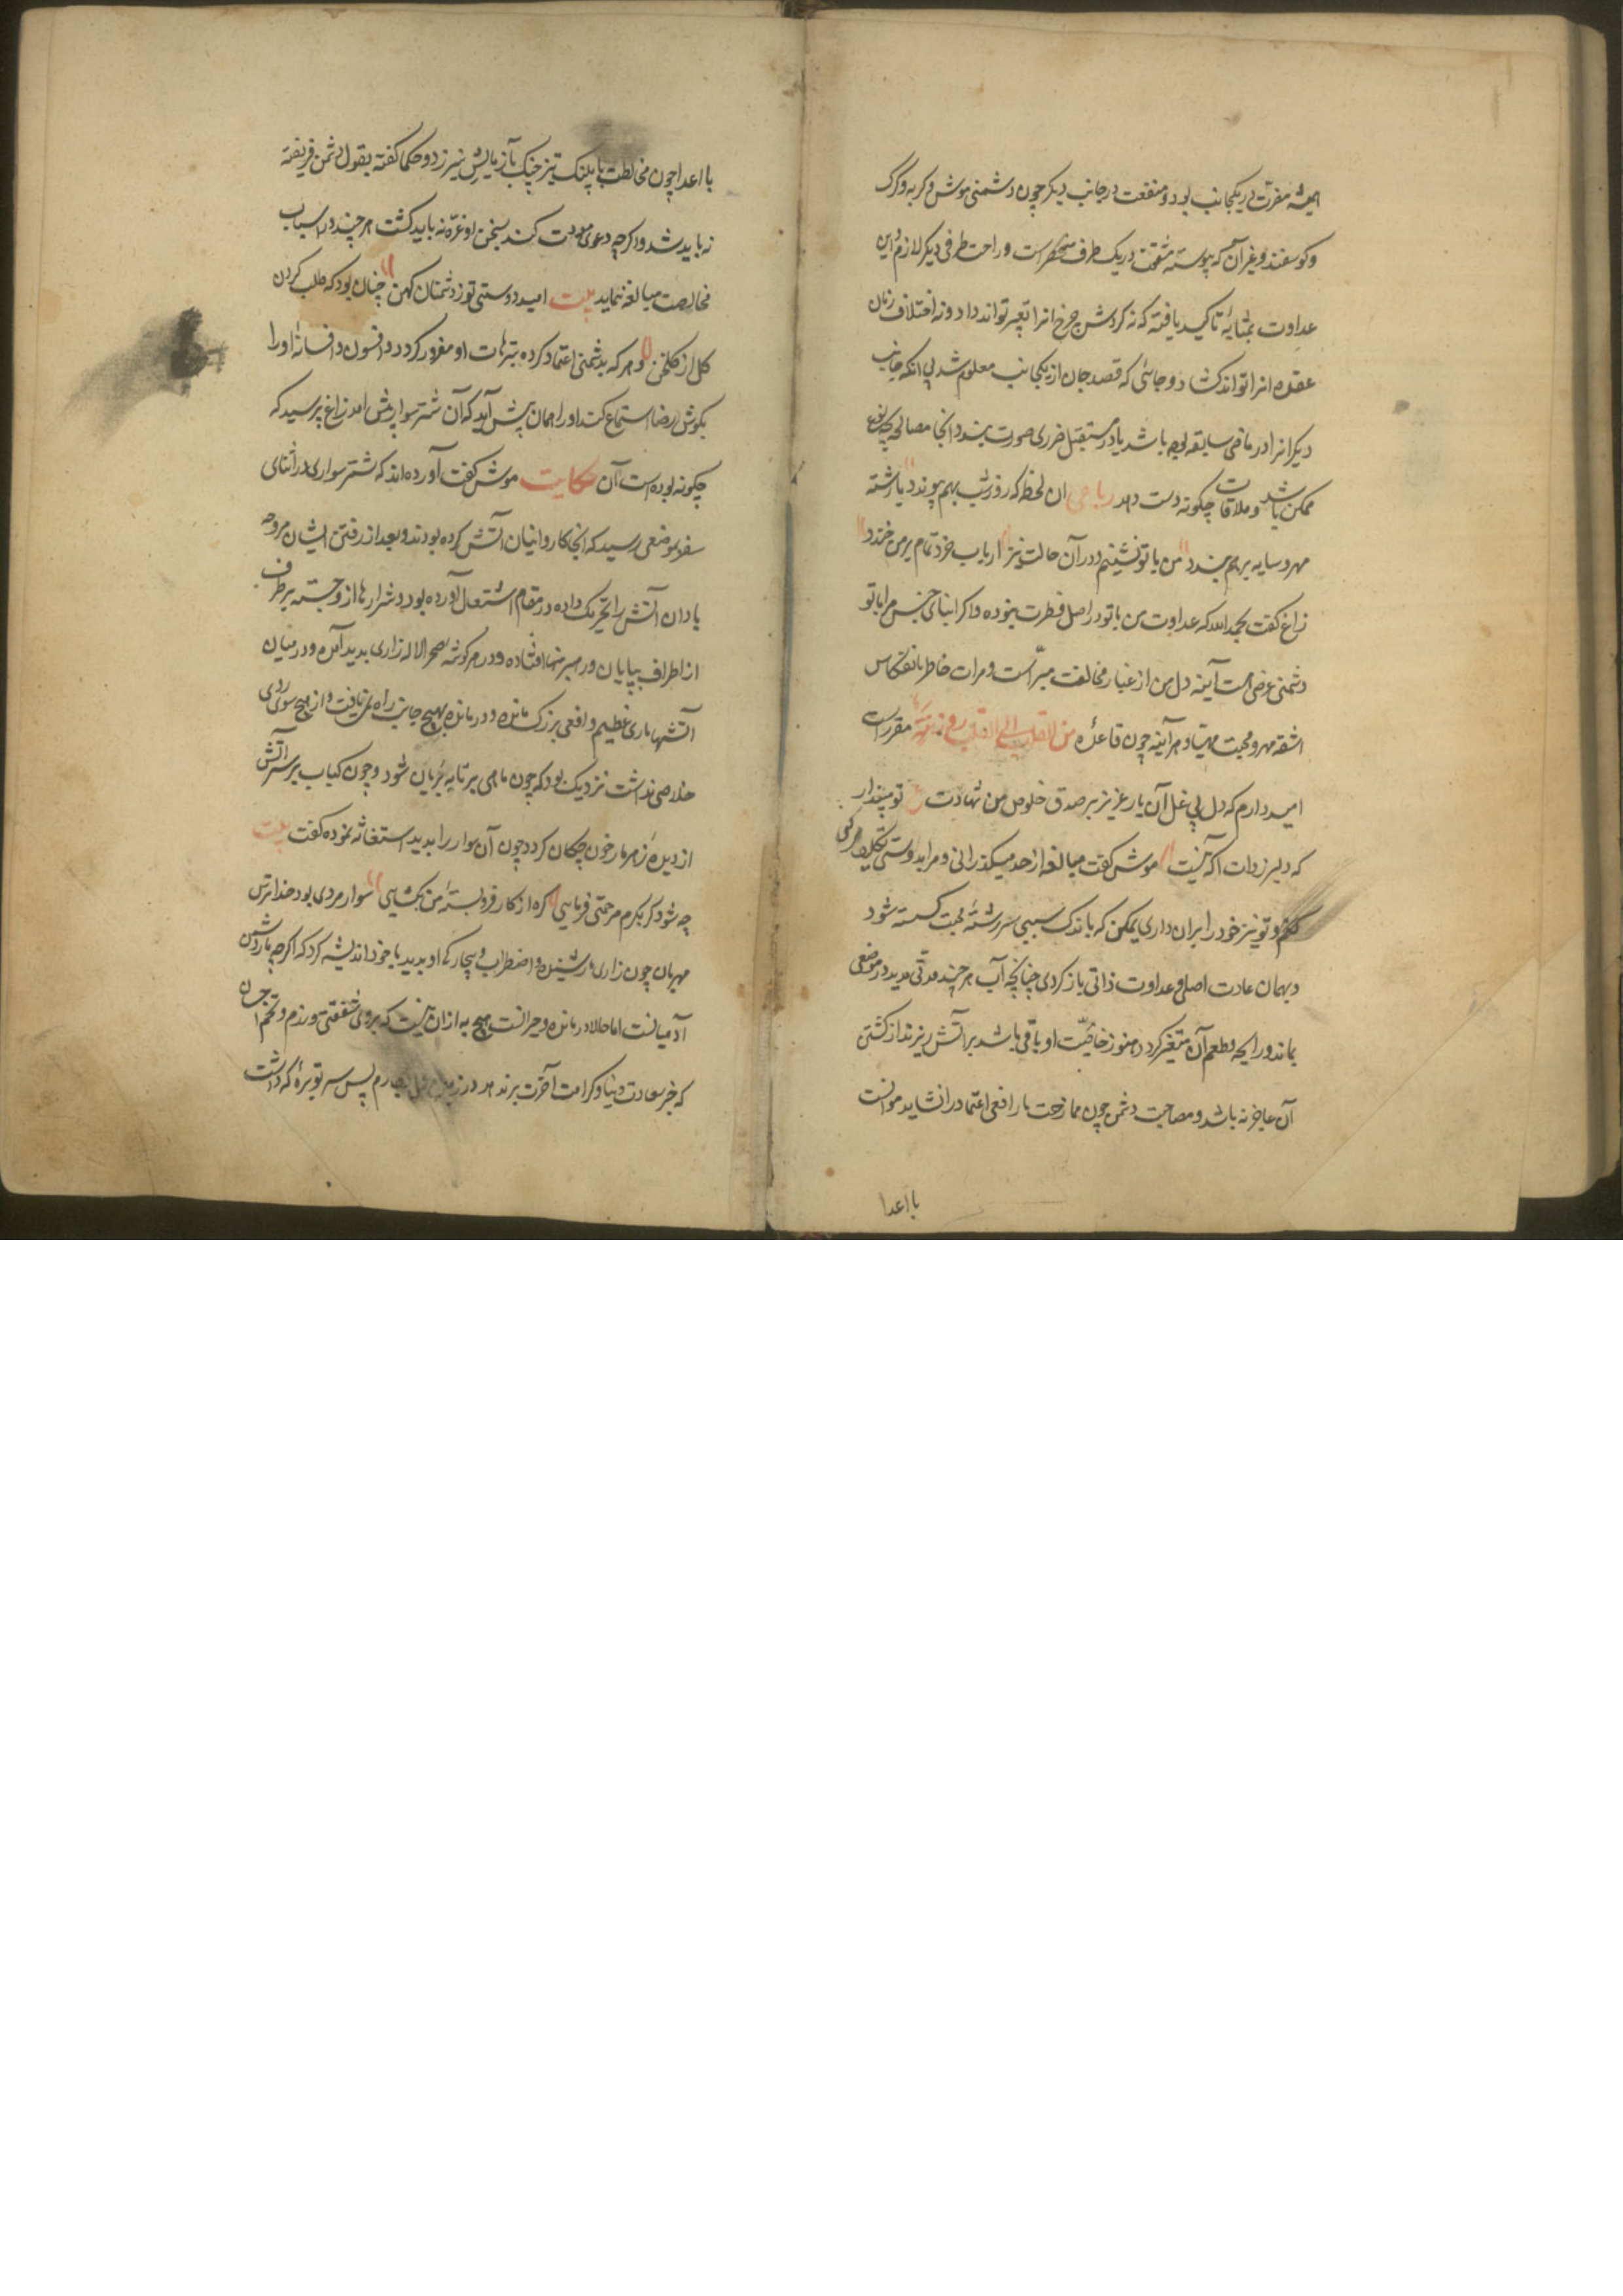 همیشه مضرت در یکجانب بود و منفعت در جانب دیگر چون دشمنی موش و گربه و گرگ
و گوسفند و غیر آن که پیوسته مشقت در یک طرف منحصر است و راحت طرفی دیگر لازم و این
عداوت بمثابه تاکید یافته که نه گردش چرخ انرا تغییر تواند داد و نه اختلاف زمان
عقده انرا تواند گشاد و جائی که قصد جان از یکجانب معلوم شد بی انکه جانب
دیگر انرا در ماضی سابقه بوده باشد یا در مستقبل ضرری صورت بندد انجا مصالحه بچه نوع
ممکن باشد و ملاقات چگونه دست دهد رباعی ان لحظه که روز و شب بهم پیوندد یا رشته
مهر و سایه بر هم بندد من با تو نشینم و در آن حالت نیز ارباب خرد تمام بر من خندد
زاغ گفت بحمد الله که عداوت من با تو در اصل فطرت نبوده و اگر ابنای جنس مرا با تو
دشمنی عرضی است آینه دل من از غبار مخالفت مبراست و مرات خاطر بانعکاس
اشعه مهر و محبت مهیا و هر آینه چون قاعده من القلب الی القلب روزنة مقرر است
امید دارم که دل بی غل آن یار عزیز بر صدق خلوص من شهادت تو مپندار
که دلبر ز دلت اگه نیست موش گفت مبالغه از حد میگذرانی و مرا بدوستی تکلیف میکنی
کنم و تو نیز خود را بر ان داری یمکن که باندک سببی سر رشته محبت گسسته شود
و بهمان عادت اصلی و عداوت ذاتی باز گردی چنانچه آب هر چند مدتی مدید در موضعی
بماند و رایحه و طعم آن متغیر گردد هنوز خاصیت او باقی باشد بر آتش ریزند از کشتن
آن عاجز نه باشد و مصاحبت دشمن چون ممازحت مار افعی اعتماد را نشاید موانست
با اعدا
با اعدا چون مخالطت با پلنگ تیز چنگ بآزمایش نیرزد و حکما گفته بقول دشمن فریفته
نه باید شد و اگرچه دعوی مودت کند بسخن او غره نه باید گشت هر چند در اسباب
مخالصت مبالغه نماید بیت امید دوستی نو ز دشمنان کهن چنان بود که طلب کردن
گل از گلخن و هر که بدشمنی اعتماد کرده بترهات او مغرور گردد و افسون و افسانه او را
بگوش رضا استماع کند او را همان پیش آید که آن شتر سوار را پیش امد زاغ پرسید که
چگونه بوده است آن حکایت موش گفت آورده اند که شتر سواری در اثنای
سفر بموضعی رسید که انجا کاروانیان آتش کرده بودند و بعد از رفتن ایشان مروحه
باد ان آتش را تحریک داده در مقام اشتعال آورده بود و شرارها از و جسته بر طرف
از اطراف بیابان در هیزمها افتاده و در هر گوشه صحرا لاله زاری پدید آمده و در میان
آتشها ماری عظیم و افعی بزرگ مانده و در مانده بهیچ جانب راه نمی یافت و از هیچ سوی روی
خلاصی نداشت نزدیک بود که چون ماهی بر تابه بریان شود و چون کباب بر سر آتش
از دیده زهر بار خون چکان گردد چون آن سوار را بدید استغاثه نموده گفت بیت
چه شود گر بکرم مرحمتی فرمایی گره از کار فرو بسته من بگشایی سوار مردی بود خدا ترس
مهربان چون زاری مار شنیده و اضطراب و بیچارگی او بدید با خود اندیشه کرد که اگرچه مار دشمن
آدمیانست اما حالا در مانده و حیرانست هیچ به از ان نیست که برو شفقتی ورزم و تخم احسان
که جز سعادت دنیا و کرامت آخرت بر ندهد در زمین بکارم پس سر توبره که داشت